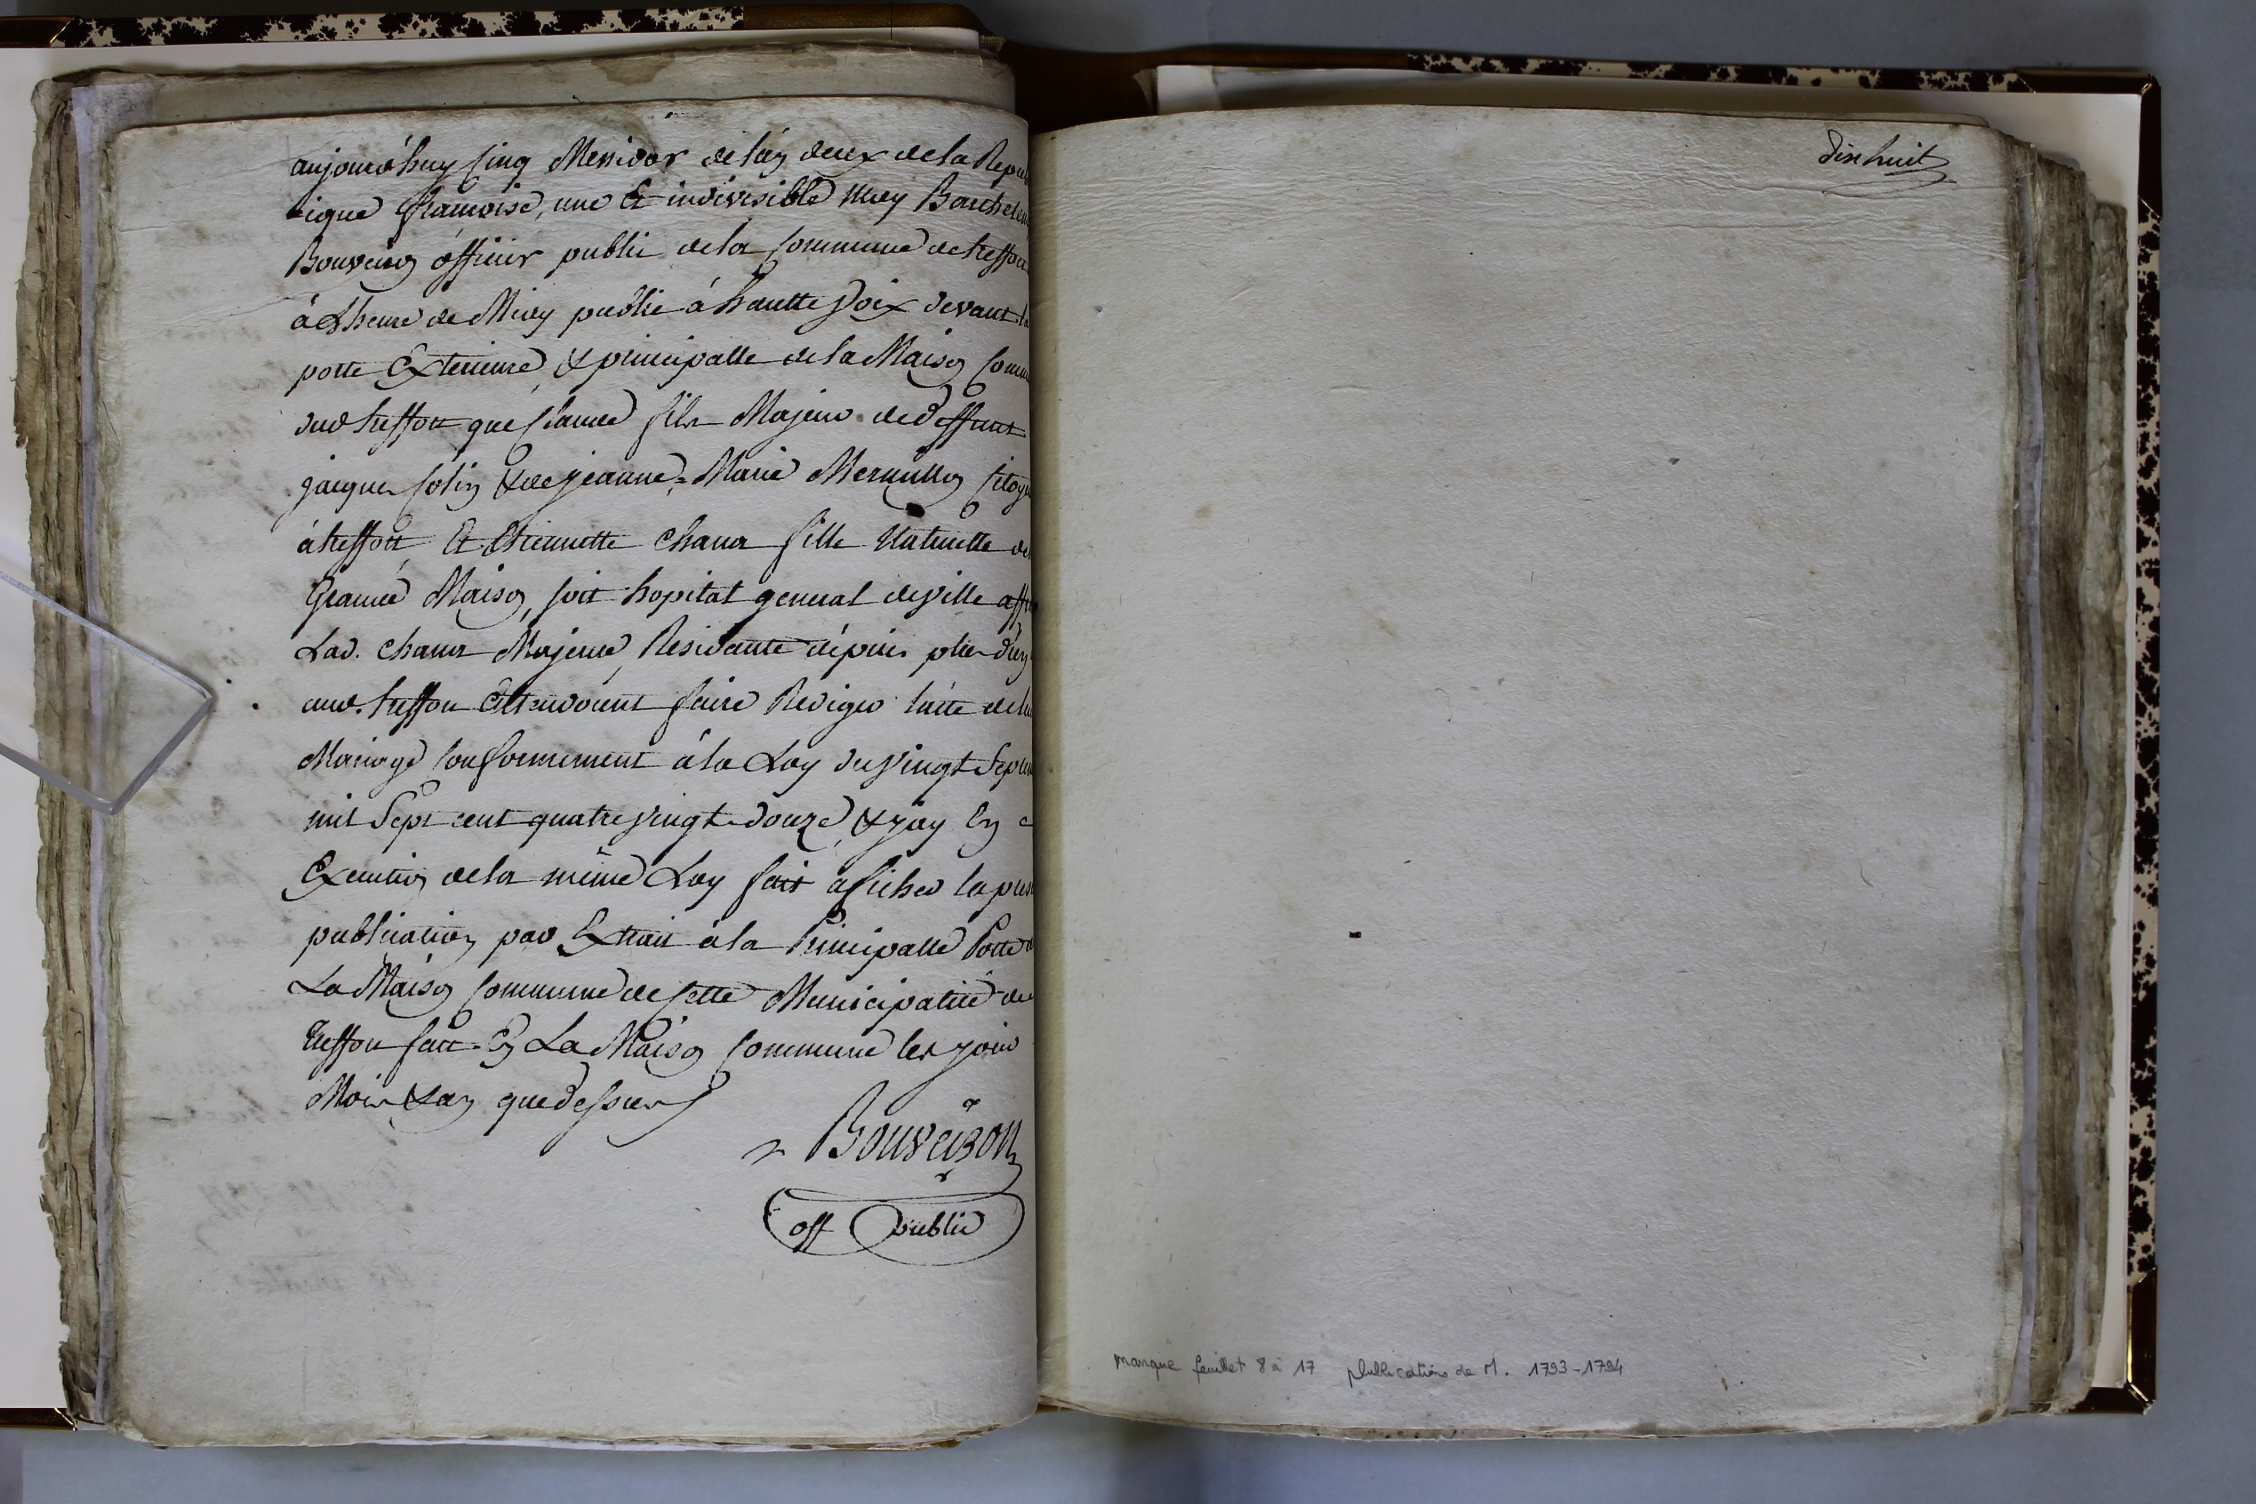 aujourd'huy Cinq Messidor de l'an deux de la Repu
ique francoise, une Et indivisible Moy Barthelem
Bouveiron officier public de la Commune de treffort
à L'heure de Midy publié à hautte Voix devant la
porte Exterieure & principalle de la Maison Comm
dud treffort que Claude fils Majeur de deffunt
jacques Colin & de jeanne=Marie Mermillon Citoye
à treffort, Et Etiennette Chana fille Naturelle de
Grande Maison, soit hopital general de Ville aff
Lad. Chana Majeure Residante depuis plus d'un
aud. treffort Entendoient faire Rediger l'acte de leu
Mariage Conformement à la Loy du Vingt Septem
mil Sept cent quatre Vingt douze, & j'ay En
Execution de la même Loy fait afficher la pres
publication par Extrait à la Principalle Porte d
La Maison Commune de Cette Municipalité de
treffort fait En La Maison Commune les jour
Mois & an que dessus
Bouveiron
off public
dix huit
manque feuillet 8 à 17 publications de M. 1793-1794